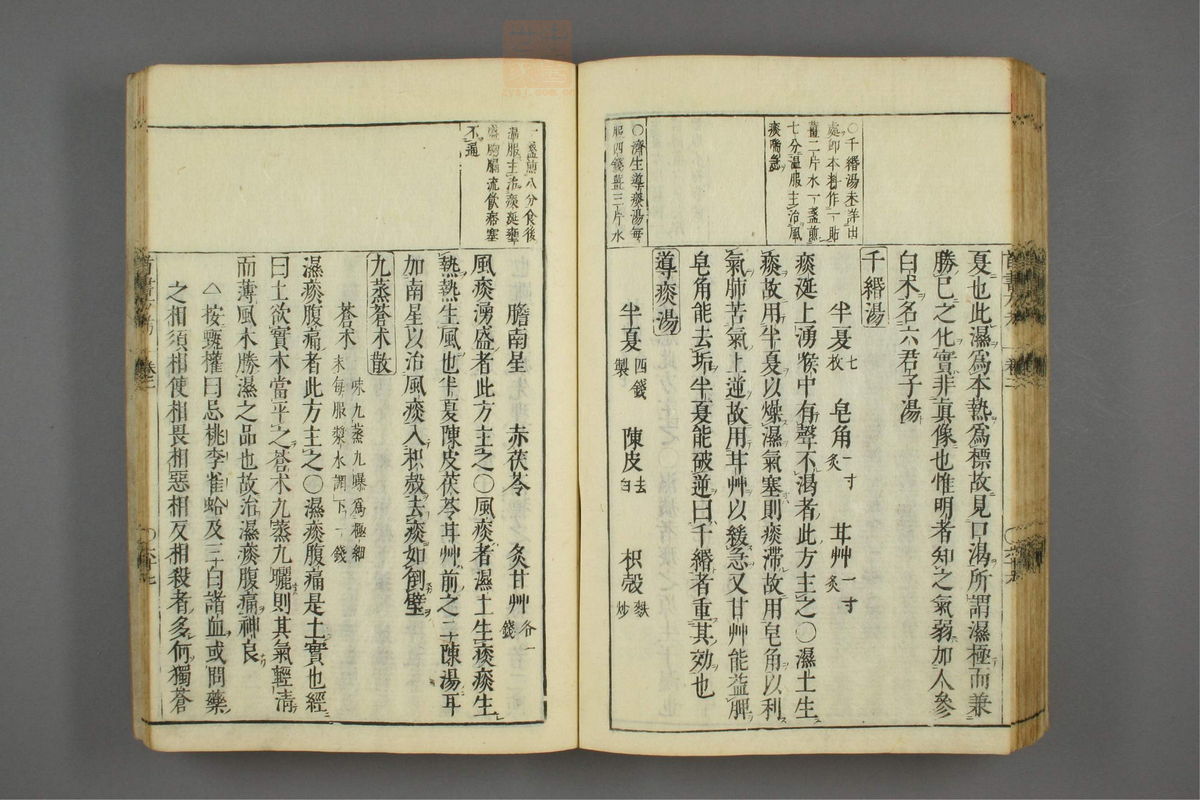 夏也此濕爲本熱爲標故見口渴所謂濕極而兼
勝巳之化實非眞像也惟明者知之氣弱加人參
白朮名六君子湯
千緡湯
半夏 七枚 皂角 一寸炙 甘艸 一寸炙
痰涎上湧猴中有聲不渴者此方主之〇濕土生
痰故用半夏以燥濕氣塞則痰滯故用皂角以利
氣肺苦氣上逆故用甘艸以緩急又甘艸能益脾
皂角能去垢半夏能破逆曰千緡者重其効也
導痰湯
半夏 四錢製 陳皮 去白 枳殼 麩炒
〇千緡湯未詳出
處即本料作一貼
薑二片水一盞煎
七分溫服主治風
痰喘急
〇濟生導痰湯每
服四錢薑三片水
膽南星 赤茯苓 炙甘艸 各一錢
風痰湧盛者此方主之〇風痰者濕土生痰痰生
熱熱生風也半夏陳皮茯苓甘艸前之二陳湯耳
加南星以治風痰入枳殼去痰如倒壁
九蒸蒼朮散
蒼朮 味九蒸九曝爲極細
末每服漿水調下一錢
濕痰腹痛者此方主之〇濕痰腹痛是土實也經
曰土欲實木當平之蒼朮九蒸九曬則其氣輕淸
而薄風木勝濕之品也故治濕痰腹痛神良
△按甄權曰忌桃李雀蛤及三白諸血或問藥
之相須相使相畏相惡相反相殺者多何獨蒼
一盞煎八分食後
溫服主治痰涎壅
盛胸膈流飮痞塞
不通